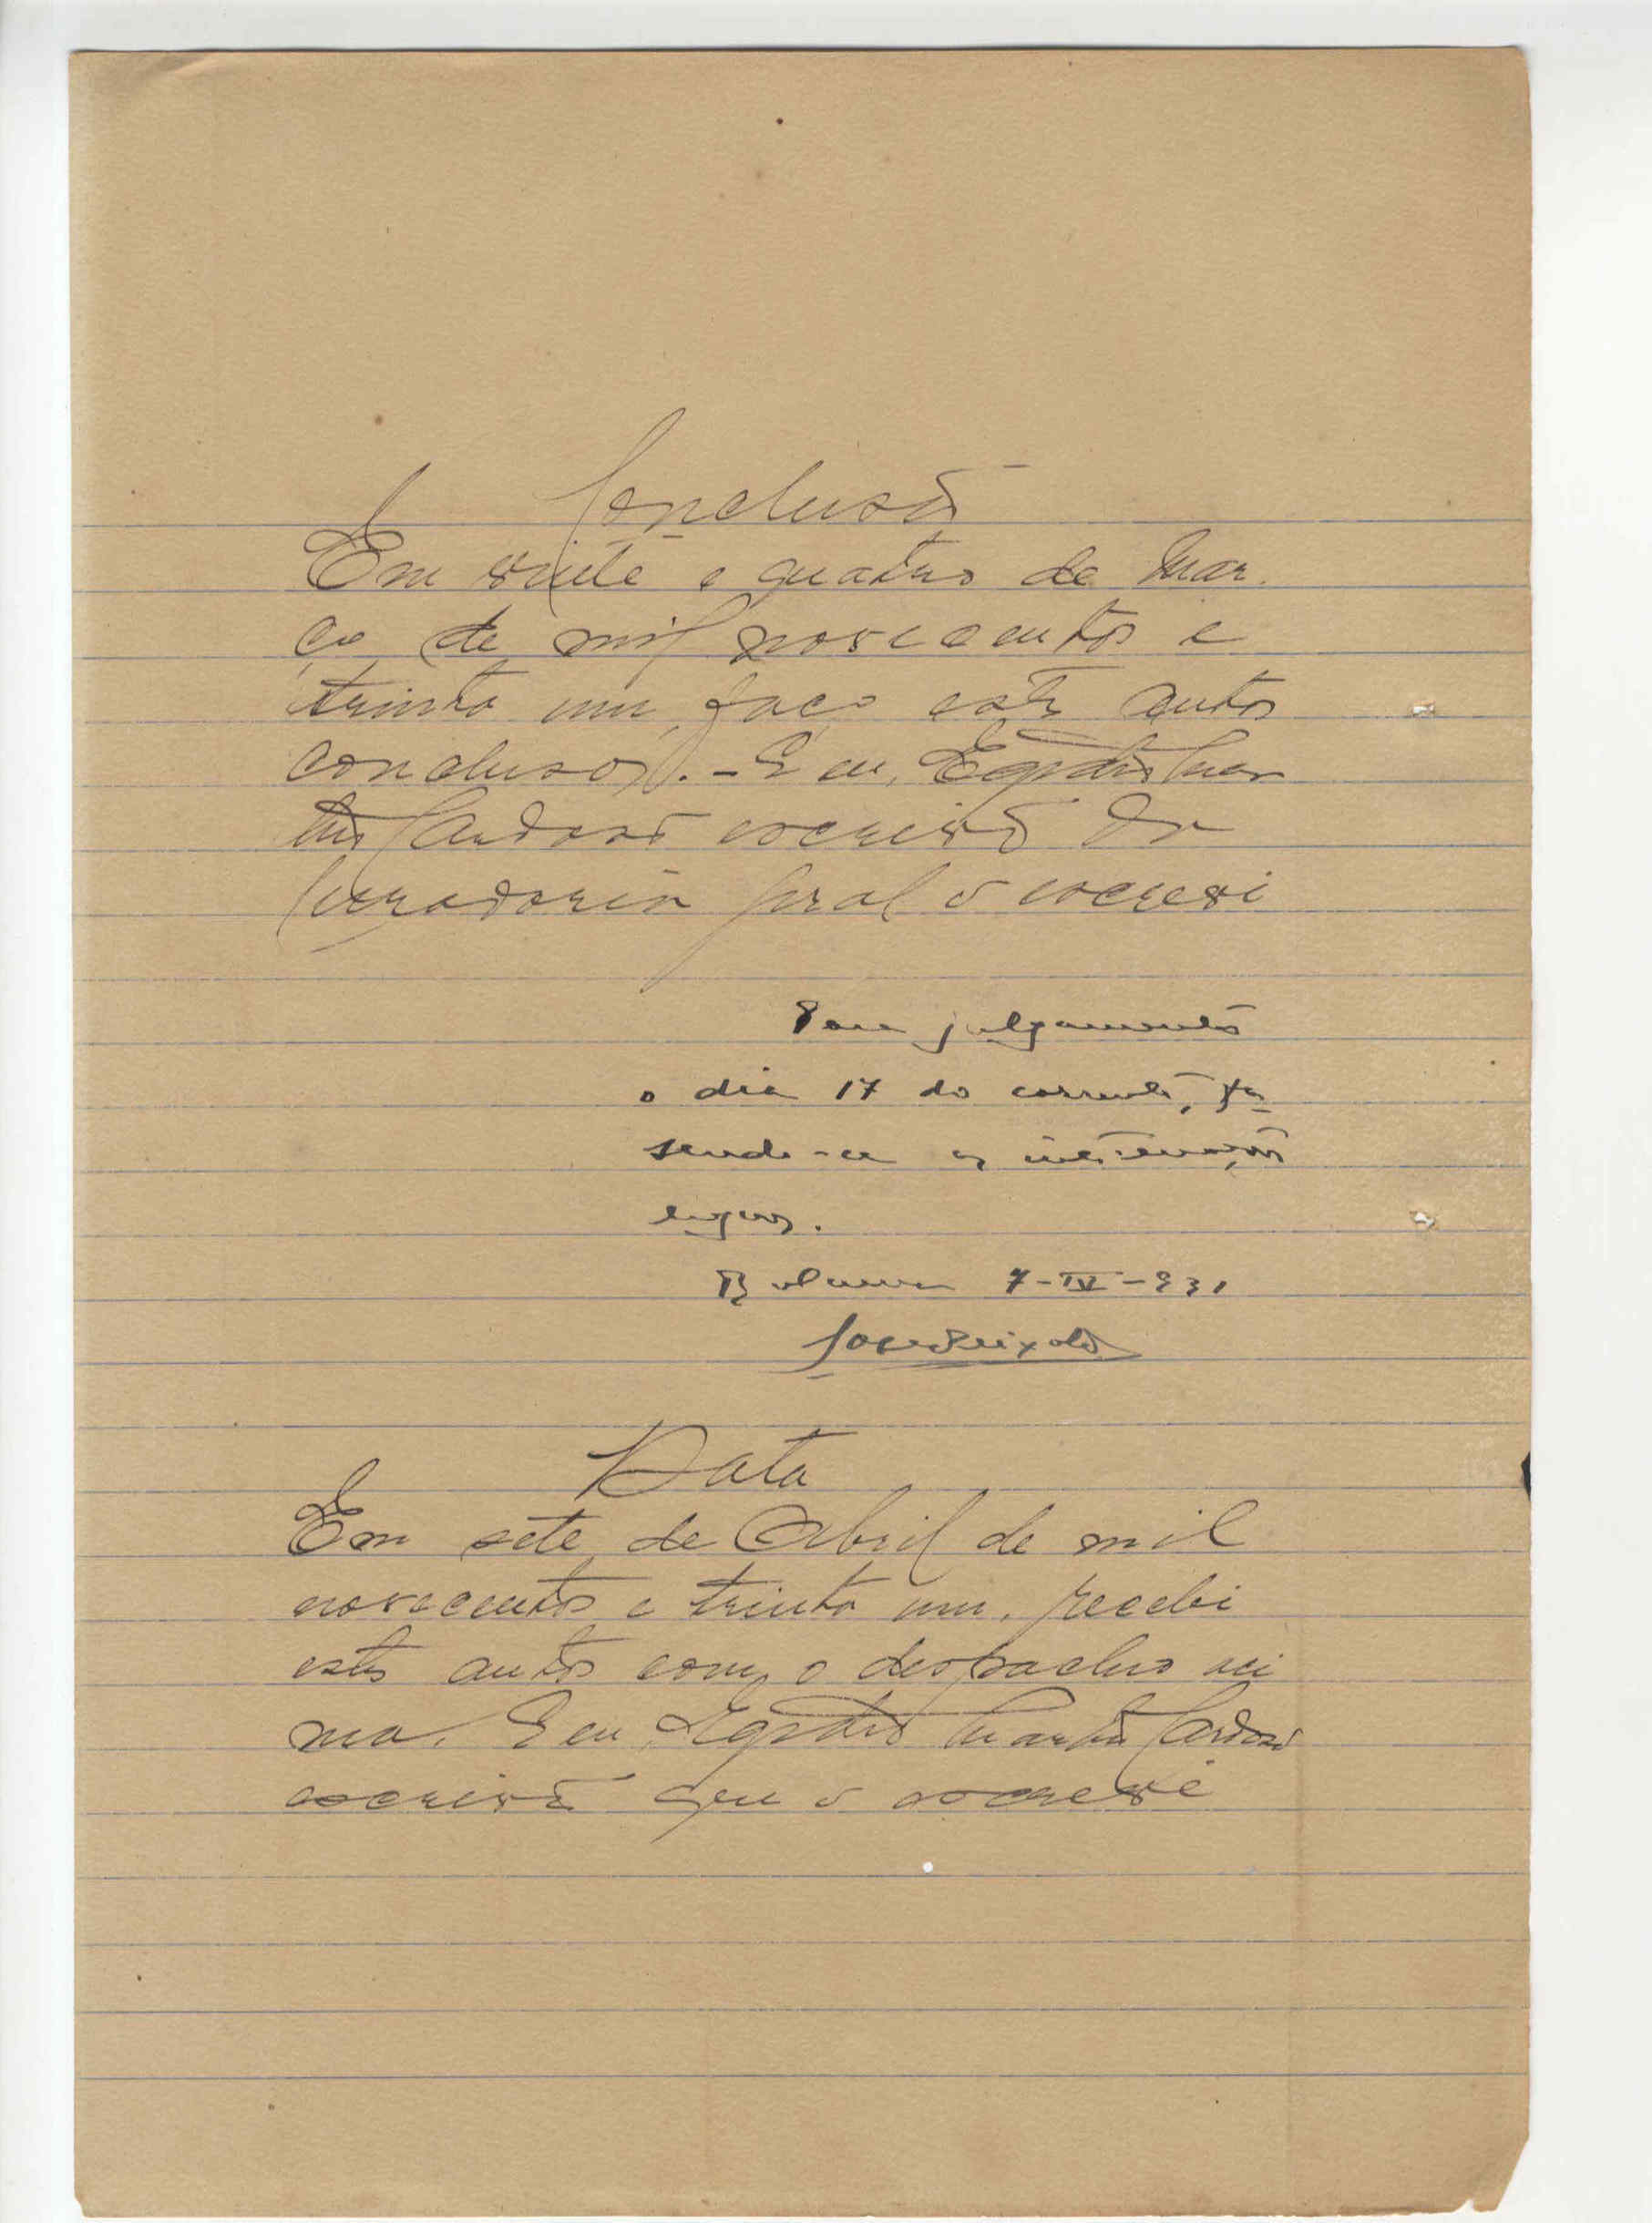 Conclusão
Em vinte e quatro de Mar
ço de mil novecentos e
trinta um, faço estes autos
conclusos. - E eu, Egidio Mar
tins Cardoso escrivão da
Curadoria Geral o escrevi
Para julgamento
o dia 17 do corrente, fa
sendo-se as intimações
legaes.
Bolama 7-IV-931
Data
Em sete de Abril de mil
novecentos e trinta um, recebi
estes autos com o despacho aci
ma. E eu Egidio Martins Cardoso
escrivão que o escrevi